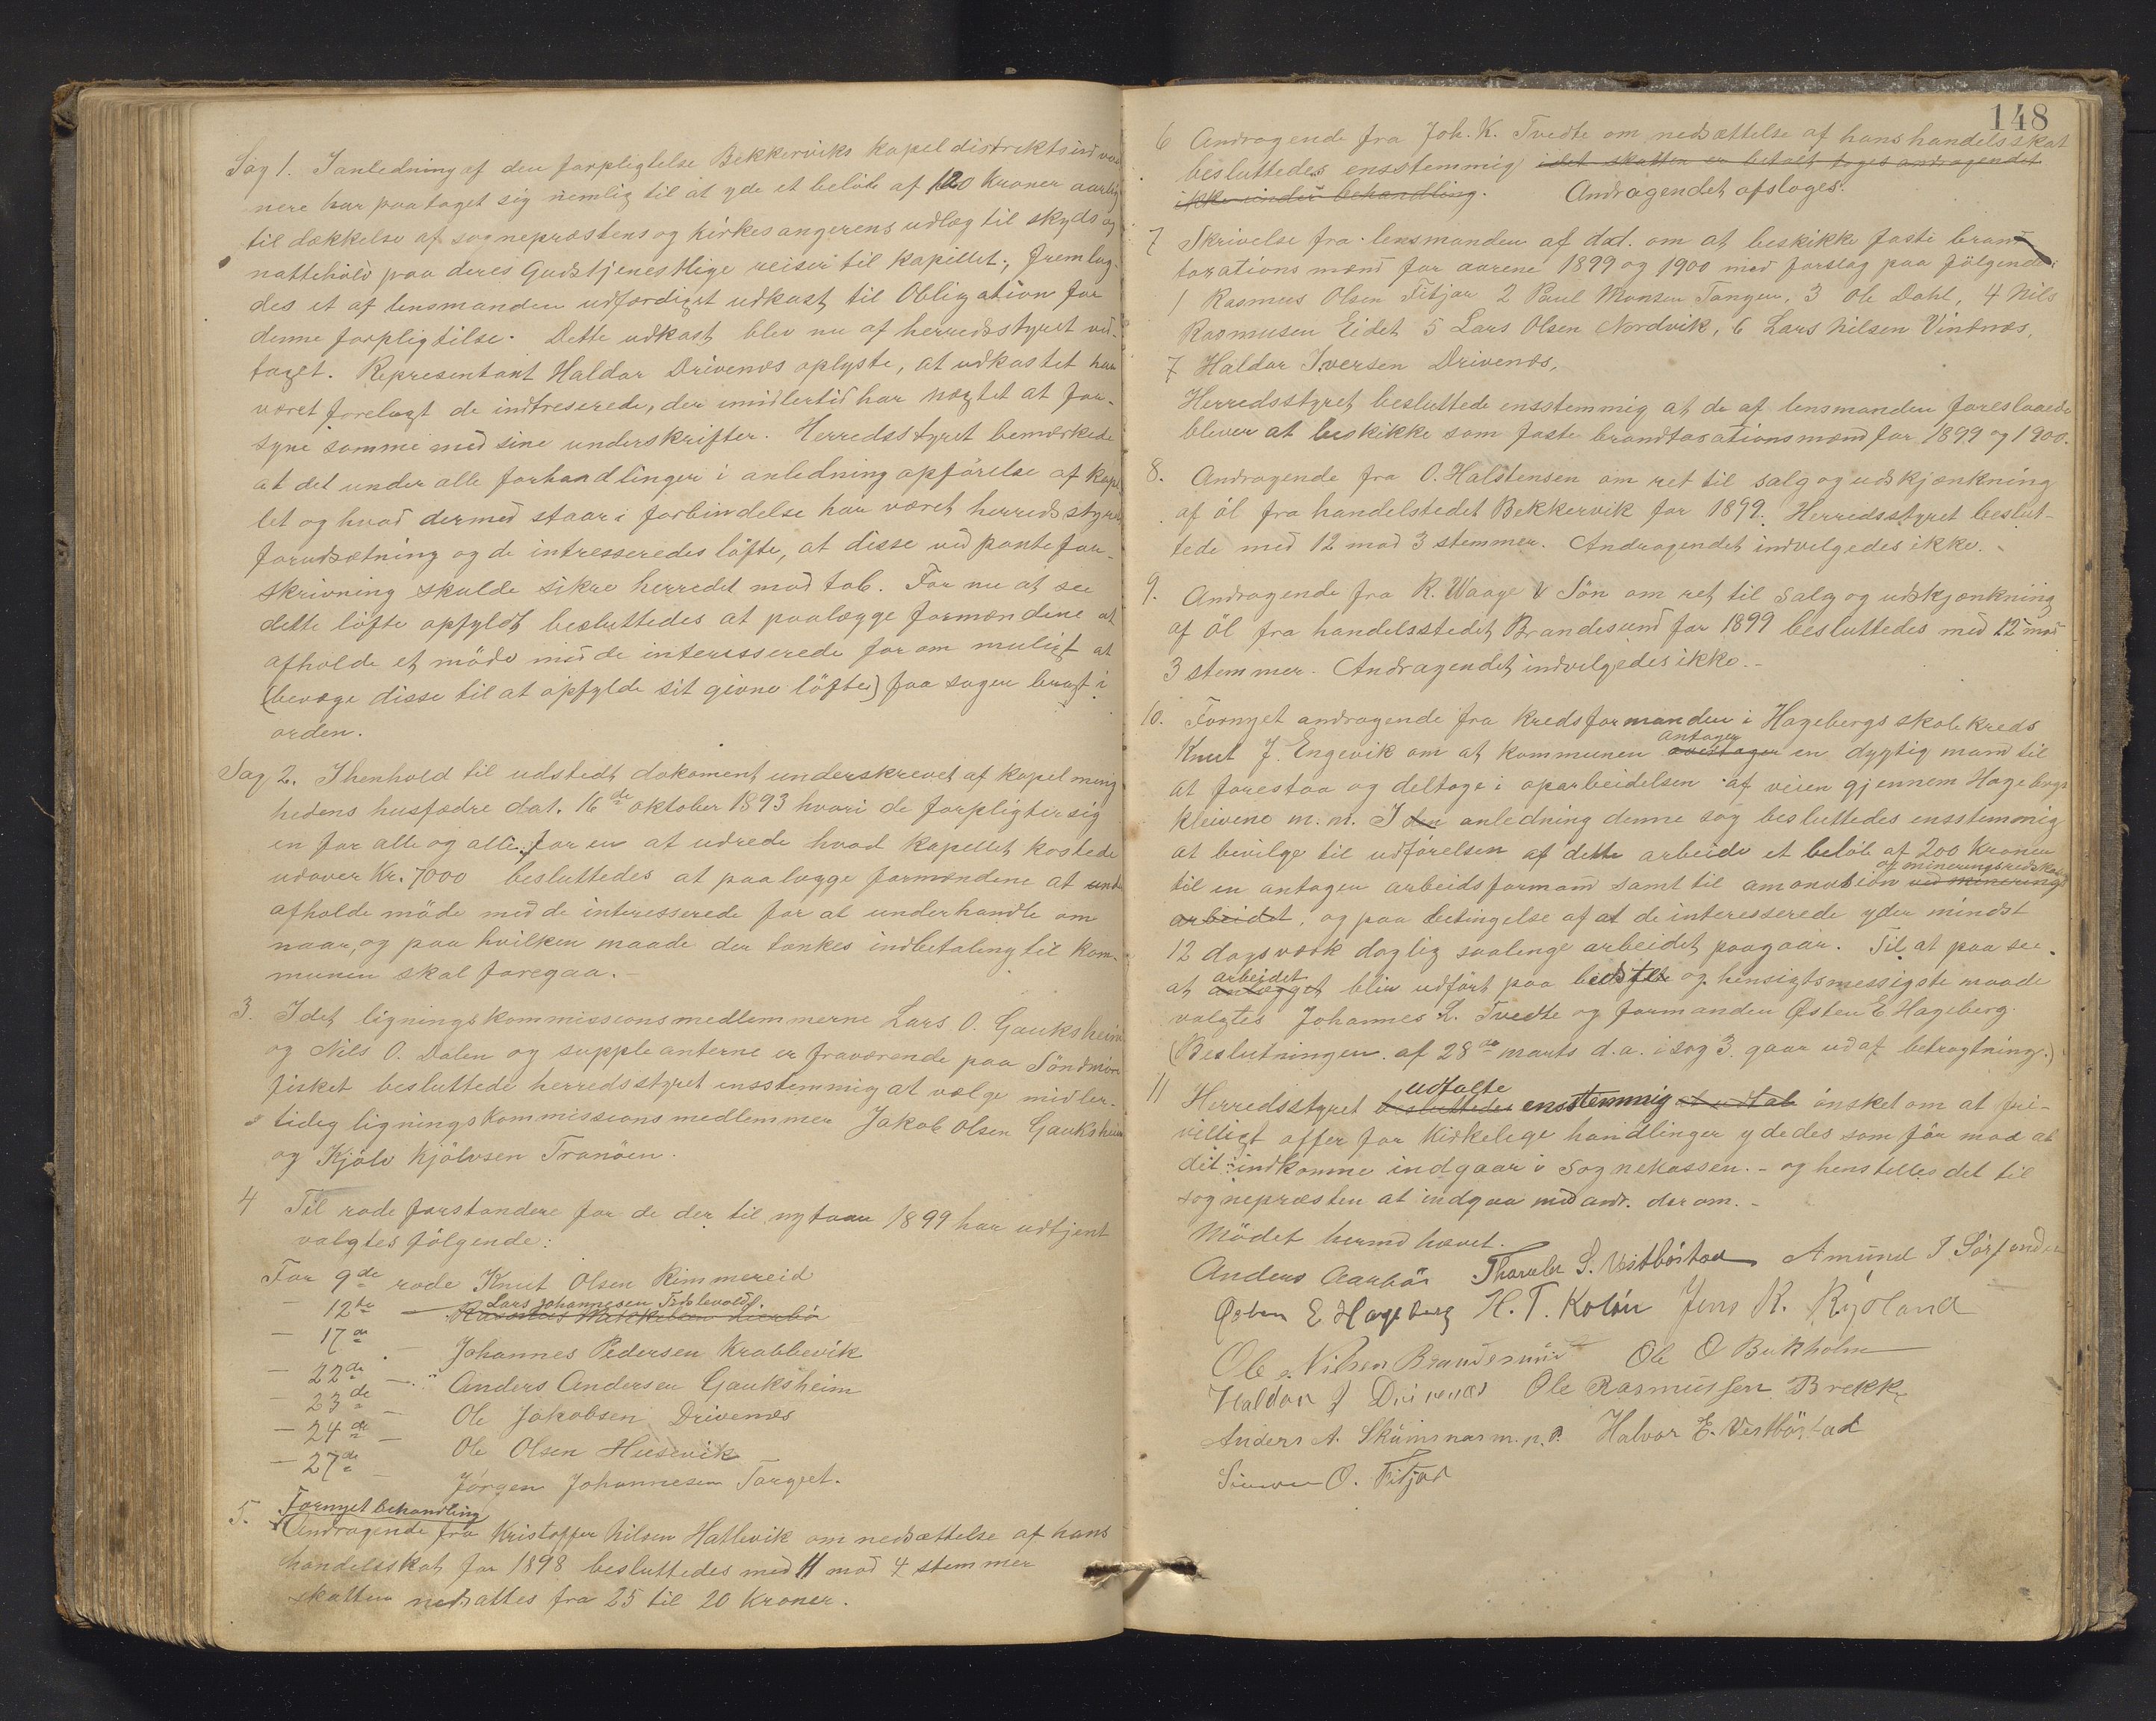 Sag 1. I anledning af den forpligtelse Bekkerviks kapeldistriktsindvaa-
nere har paataget sig nemlig til at yde et beløb af 120 Kroner aarlig
til dækkelse af sognepræstens og kirkesangerens udlæg til skyds og
nattehold paa deres Gudstjenestlige reiser til kapellet, fremlag-
des et af lensmanden udfærdiget udkast til Obligation for
denne forpligtilse. Dette udkast blev nu af herredsstyret ved-
taget. Representant Haldor Drivenæs oplyste, at udkastet har
været forelagt de indtreserede, der imidlertid har nægtet at for-
syne samme med sine underskrifter. Herredsstyret bemærkede
at det under alle forhandlinger i anledning opførelse af kapel-
let og hvad dermed staar i forbindelse har været herredsstyrets
forudsætning og de intresseredes löfte, at disse ved pantefor-
skrivning skulde sikre herredet mod tab. For nu at see
dette löfte opfyldt besluttedes at paalægge formændene at
afholde et möde med de interesserede for om muligt at
(bevæge disse til at opfylde sit givne löfte) faa sagen bragt i
orden.
Sag 2. I henhold til udstedt dokoment underskrevet af kapelmenig
hedens husfædre dat. 16de oktober 1893 hvori de forpligter sig
en for alle og alle for en at udrede hvad kapellet kostede
udover Kr. 7000 besluttedes at paalægge formændene at
afholde möde med de interesserede for at underhandle om
naar, og paa hvilken maade der tænkes indbetaling til kom-
munen skal foregaa.-
3. Idet ligningskommissionsmedlemmerne Lars O. Gauksheim
og Nils O. Dalen og suppleanterne er fraværende paa Söndmöre
fisket besluttede herredsstyret ensstemmig at vælge midler-
tidig ligningskommissionsmedlemmer Jakob Olsen Gauksheim
og Kjölv Kjölvsen Tranöen.
4 Til rodeforstandere for de der til nytaar 1899 har udtjent
valgtes fölgende:
For 9de rode Knut Olsen Rimmereid
Lars Johannesen Tislevold.
— 12te —
— 17de — Johannes Pedersen Krabbevik
— 22de — Anders Andersen Gauksheim
— 23de — Ole Jakobsen Drivenes
— 24de — Ole Olsen Husevik
— 27de — Jørgen Johannesen Torget.
Fornyet behandling
5. Andragende fra Kristoffer Nilsen Hatlevik om nedsættelse af hans
handelsskat for 1898 besluttedes med 11 mod 4 stemmer
skatten nedsattes fra 25 til 20 Kroner.
148
6 Andragende fra Joh. K. Tvedte om nedsættelse af hans handelsskat
besluttedes ensstemmig idet skatten er betalt toges andragendet
ikke under behandling. Andragendet afsloges.
7 Skrivelse fra lensmanden af dat. om at beskikke faste brand
taxationsmænd for aarene 1899 og 1900 med forslag paa fölgende:
1 Rasmus Olsen Fitjar 2 Paul Monsen Tangen, 3 Ole Dahl, 4 Nils
Rasmusen Eidet 5 Lars Olsen Nordvik, 6 Lars Nilsen Vindnæs,
7 Haldor Iversen Drivenæs,
Herredsstyret besluttede ensstemmig at de af lensmanden foreslaaede
bliver at beskikke som faste brandtaxationsmænd for 1899 og 1900.
8. Andragende fra O. Halstensen om ret til salg og udskjænkning
af öl fra handelstedet Bekkervik for 1899. Herredsstyret beslut-
tede med 12 mod 3 stemmer. Andragendet indvilgedes ikke.-
9. Andragende fra R. Waage & Sön om ret til salg og udskjænkning
af öl fra handelsstedet Brandesund for 1899 besluttedes med 12 mod
3 stemmer. Andragendet indvilgedes ikke.-
10. Fornyet andragende fra kredsformanden i Hagebergs skolekreds
antager
Knut J. Engevik om at kommunen overtager en dygtig mand til
at forestaa og deltage i oparbeidelsen af veien gjennem Hagebergs
kleivene m. m. I den anledning denne sag besluttedes ensstemmig
at bevilge til udförelsen af dette arbeide et belöb af 200 kroner
og mineringsredskab
til en antagen arbeidsformand samt til amonution ved minerings
arbeidet, og paa betingelse af at de interesserede yder mindst
12 dagsværk daglig saalenge arbeidet paagaar. Til at paa see
arbeidet
at anlægget blir udfört paa bedste og hensigtsmessigste maade
valgtes Johannes L. Tvedte og formanden Østen E Hageberg.
(Beslutningen af 28de marts d.a. i sag 3. gaar ud af betragtning.)
11 udtalte
Herredsstyret besluttede ensstemmig at udtale önsket om at fri-
villigt offer for kirkelege handlinger ydedes som för mod at
det indkomne indgaar i Sognekassen.- og henstilles det til
sognepræsten at indgaa med andr. derom.-
Mödet hermed hævet.
Anders Aarbö Thorvler S. Vestböstad Amund I Sörfonden
Østen E Hageberg H. T. Kolöen Jens R. Rydland
Ole Nilsen Brandesund Ole O Bukholm
Haldor J Drivenæs Ole Rasmussen Brekke
Anders A. Skumsnæs m. p. P. Halvor E. Vestböstad
Simon O. Fitjar